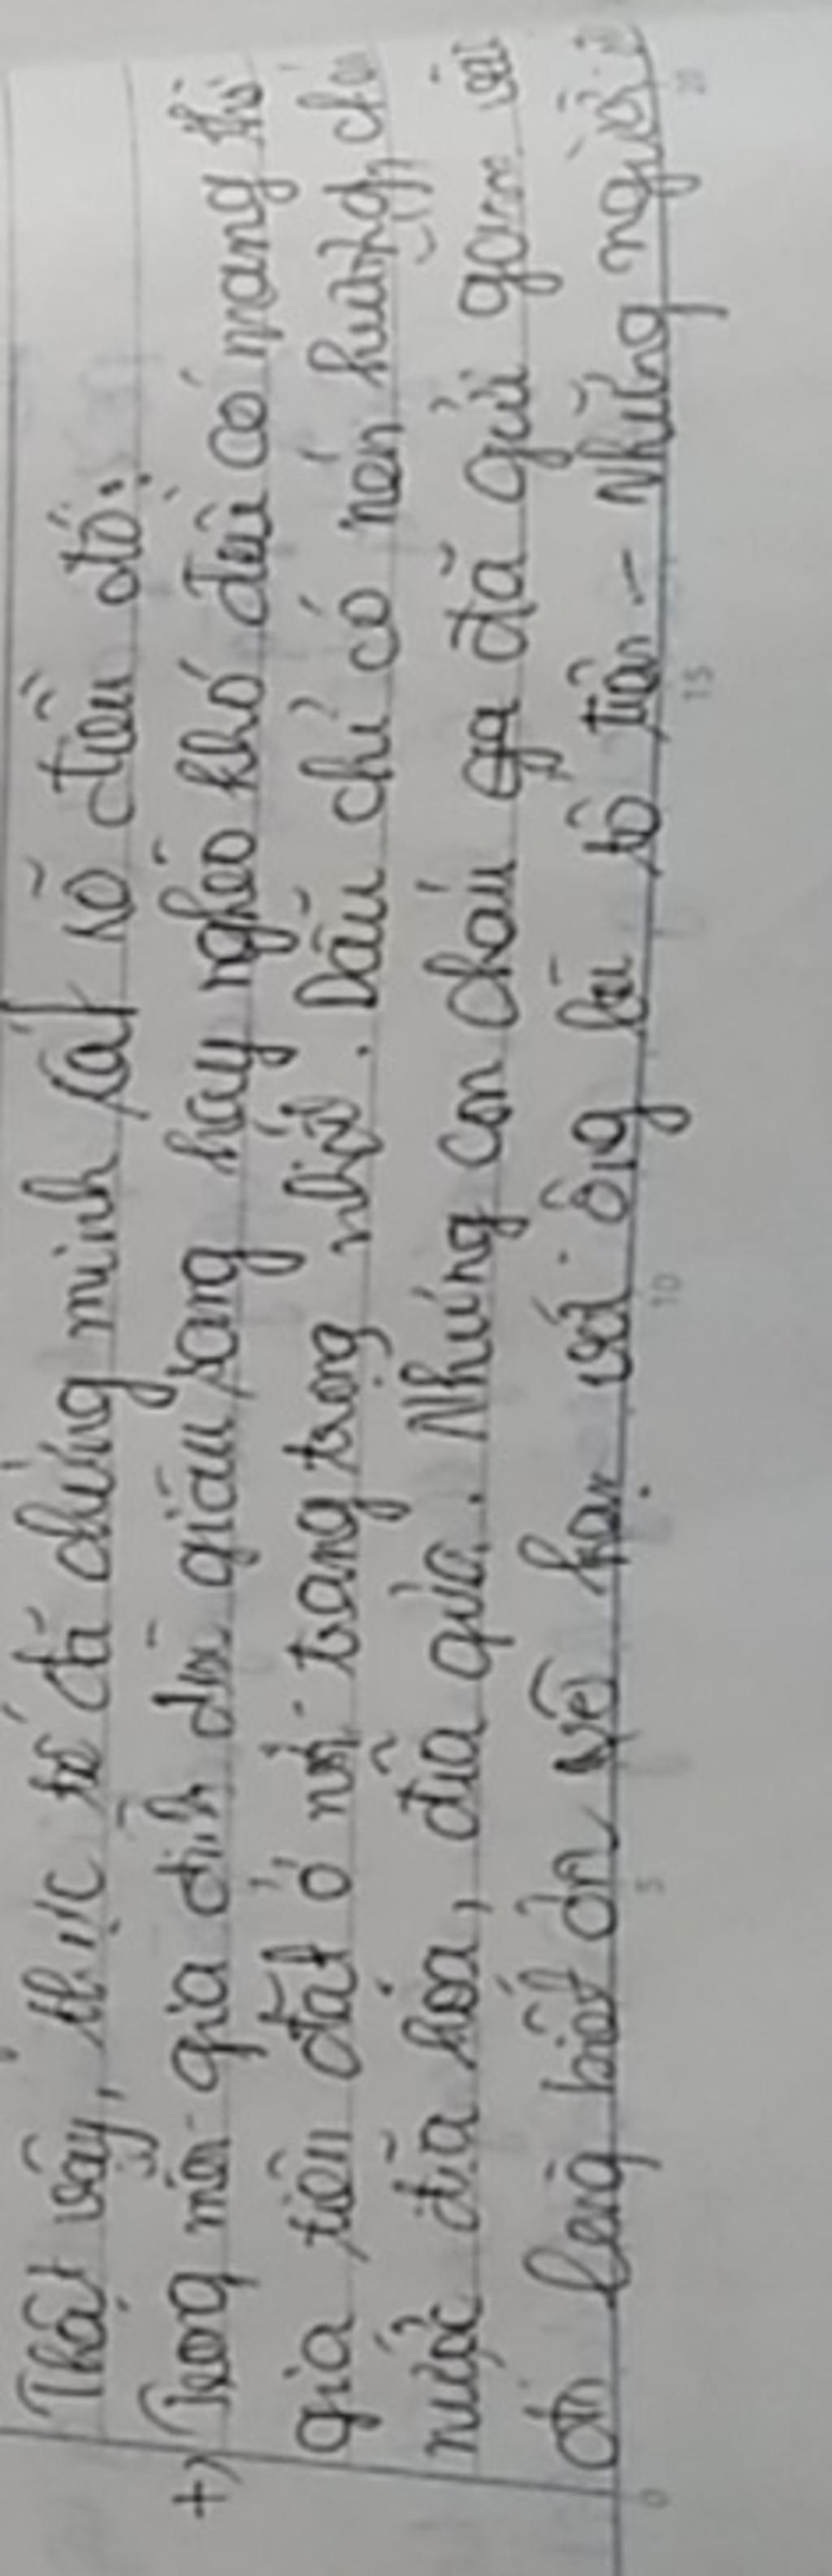 Thật vậy, thực tế đã chứng minh rất rõ điều đó:
+) Trong mỗi gia đình dù giàu sang hay nghèo khó đều có mang thờ
gia tiên đặt ở nơi trang trọng nhất. Dẫu chỉ có nén hương, ché
nước đĩa hoa, đĩa quả. Nhưng con cháu đã gửi gam vào
đó lòng biết ơn vô hạn với ông bà tổ tiên - Những người
0 5 10 15 20